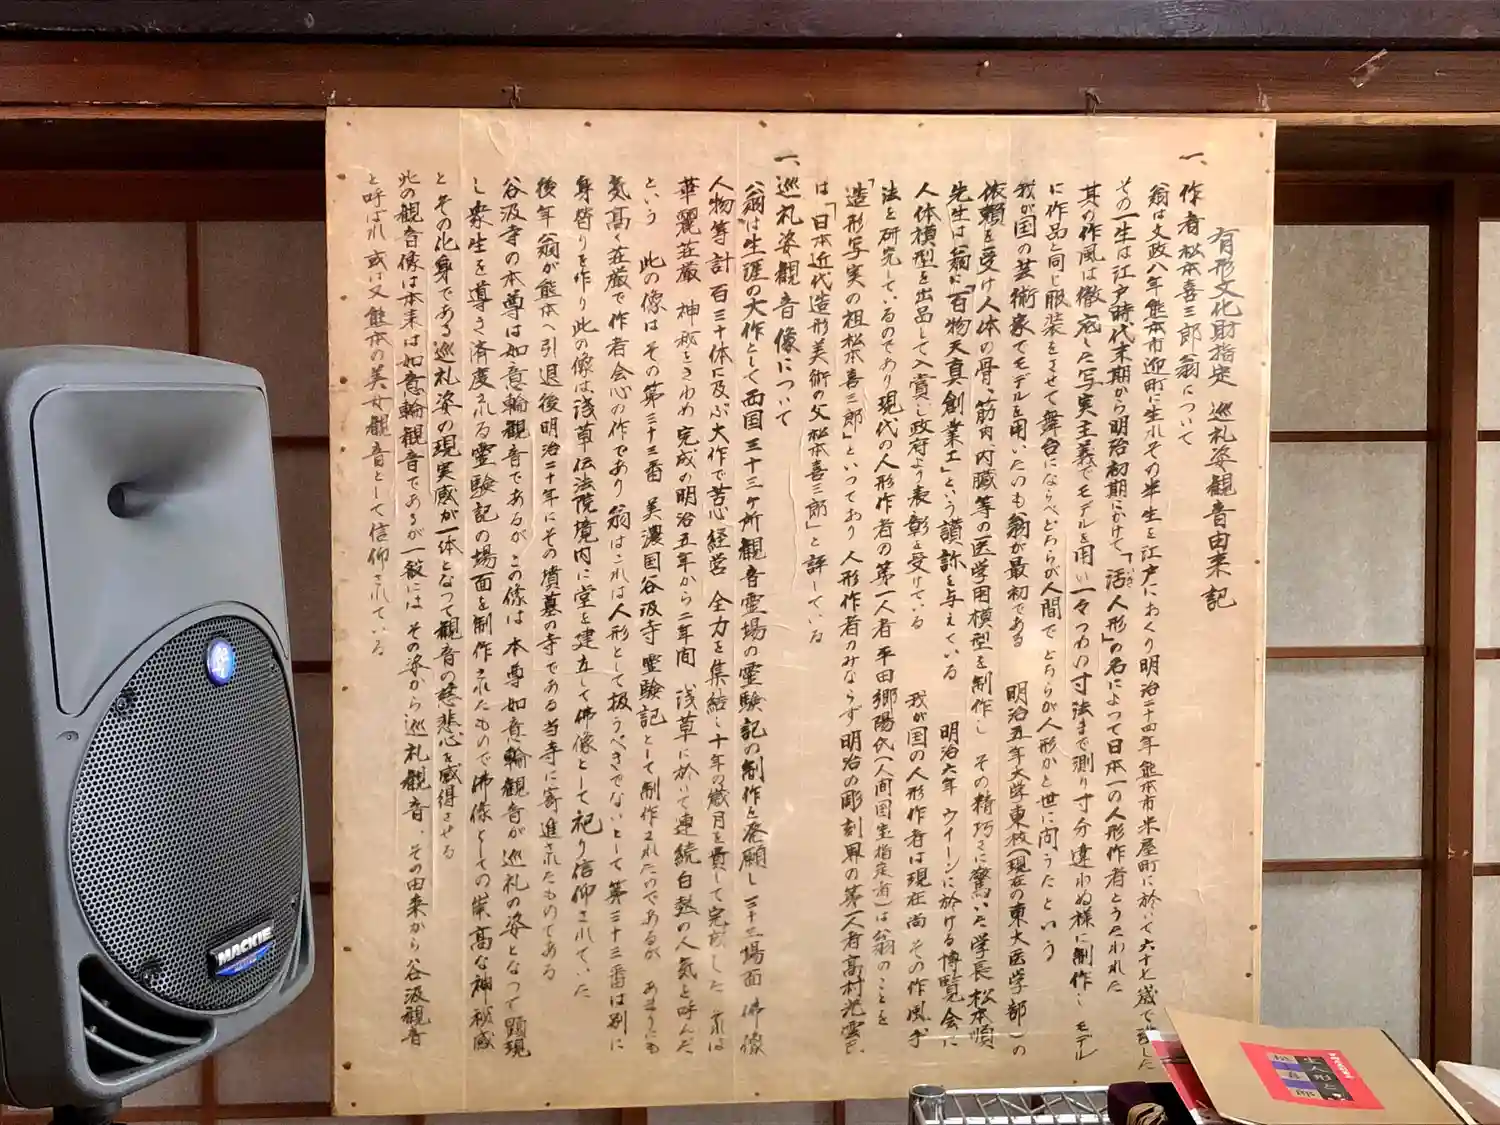 有形文化財指定 巡礼姿観音由来記
一、
作者 松本喜三郎翁について
翁は文政八年熊本市迎町に生れその半生を江戸におくり明治二十四年熊本市米屋町に於いて六十七歳で歿した
その一生は江戸時代末期から明治初期にかけて「活人形」の名によって日本一の人形作者とうたわれた
いき
其の作風は徹底した写実主義でモデルを用い一々つわい寸法まで測り寸分違わぬ様に制作し モデル
に作品と同じ服装をさせて舞台にならべどちらが人間で どちらが人形かと世に問うたという
我が国の芸術家でモデルを用いたのも翁が最初である 明治五年大学東校(現在の東大医学部)の
依頼を受け人体の骨、筋肉、内臓等の医学用模型を制作し その精巧さに驚いた学長 松本順
先生は翁に「百物天真創業工」という讃称を与えている 明治六年 ウイーンに於ける博覧会に
人体模型を出品して入賞し政府より表彰を受けている 我が国の人形作者は現在尚 その作風、手
法を研究しているのであり現代の人形作者の第一人者 平田郷陽氏(人間国宝指定者)は翁のことを
「造形写実の祖松本喜三郎」といっており 人形作者のみならず明治の彫刻界の第一人者高村光雲氏
は「日本近代造形美術の父松本喜三郎」と評している
一、
巡礼姿観音像について
公翁は生涯の大作として西国三十三ヶ所観音霊場の霊験記の制作を発願し三十三場面 佛像
人物等計百三十体に及ぶ大作で苦心経営 全力を集結し十年の歳月を費して完成した それは
華麗荘厳 神秘をきわめ完成の明治五年から二年間 浅草に於いて連続白熱の人気を呼んだ
という 此の像はその第三十三番 美濃国谷汲寺霊験記として制作されたのであるが あまりにも
気高く荘厳で作者会心の作であり翁はこれは人形として扱うべきでないとして第三十三番は別に
身替りを作り此の像は浅草伝法院境内に堂を建立して佛像として祀り信仰されていた
後年翁が熊本へ引退後明治二十年にその墳墓の寺である当寺に寄進されたものである
谷汲寺の本尊は如意輪観音であるが この像は 本尊如意輪観音が巡礼の姿となって顕現
し衆生を導き済度される霊験記の場面を制作されたもので佛像としての崇高な神秘感
と その化身である巡礼姿の現実感が一体となって観音の慈悲心を感得させる
此の観音像は本来は如意輪観音であるが一般には その姿から巡礼観音、その由来から谷汲観音
と呼ばれ 或は又 熊本の美女観音として信仰されている
MACKIE
生人形と
松本喜三郎